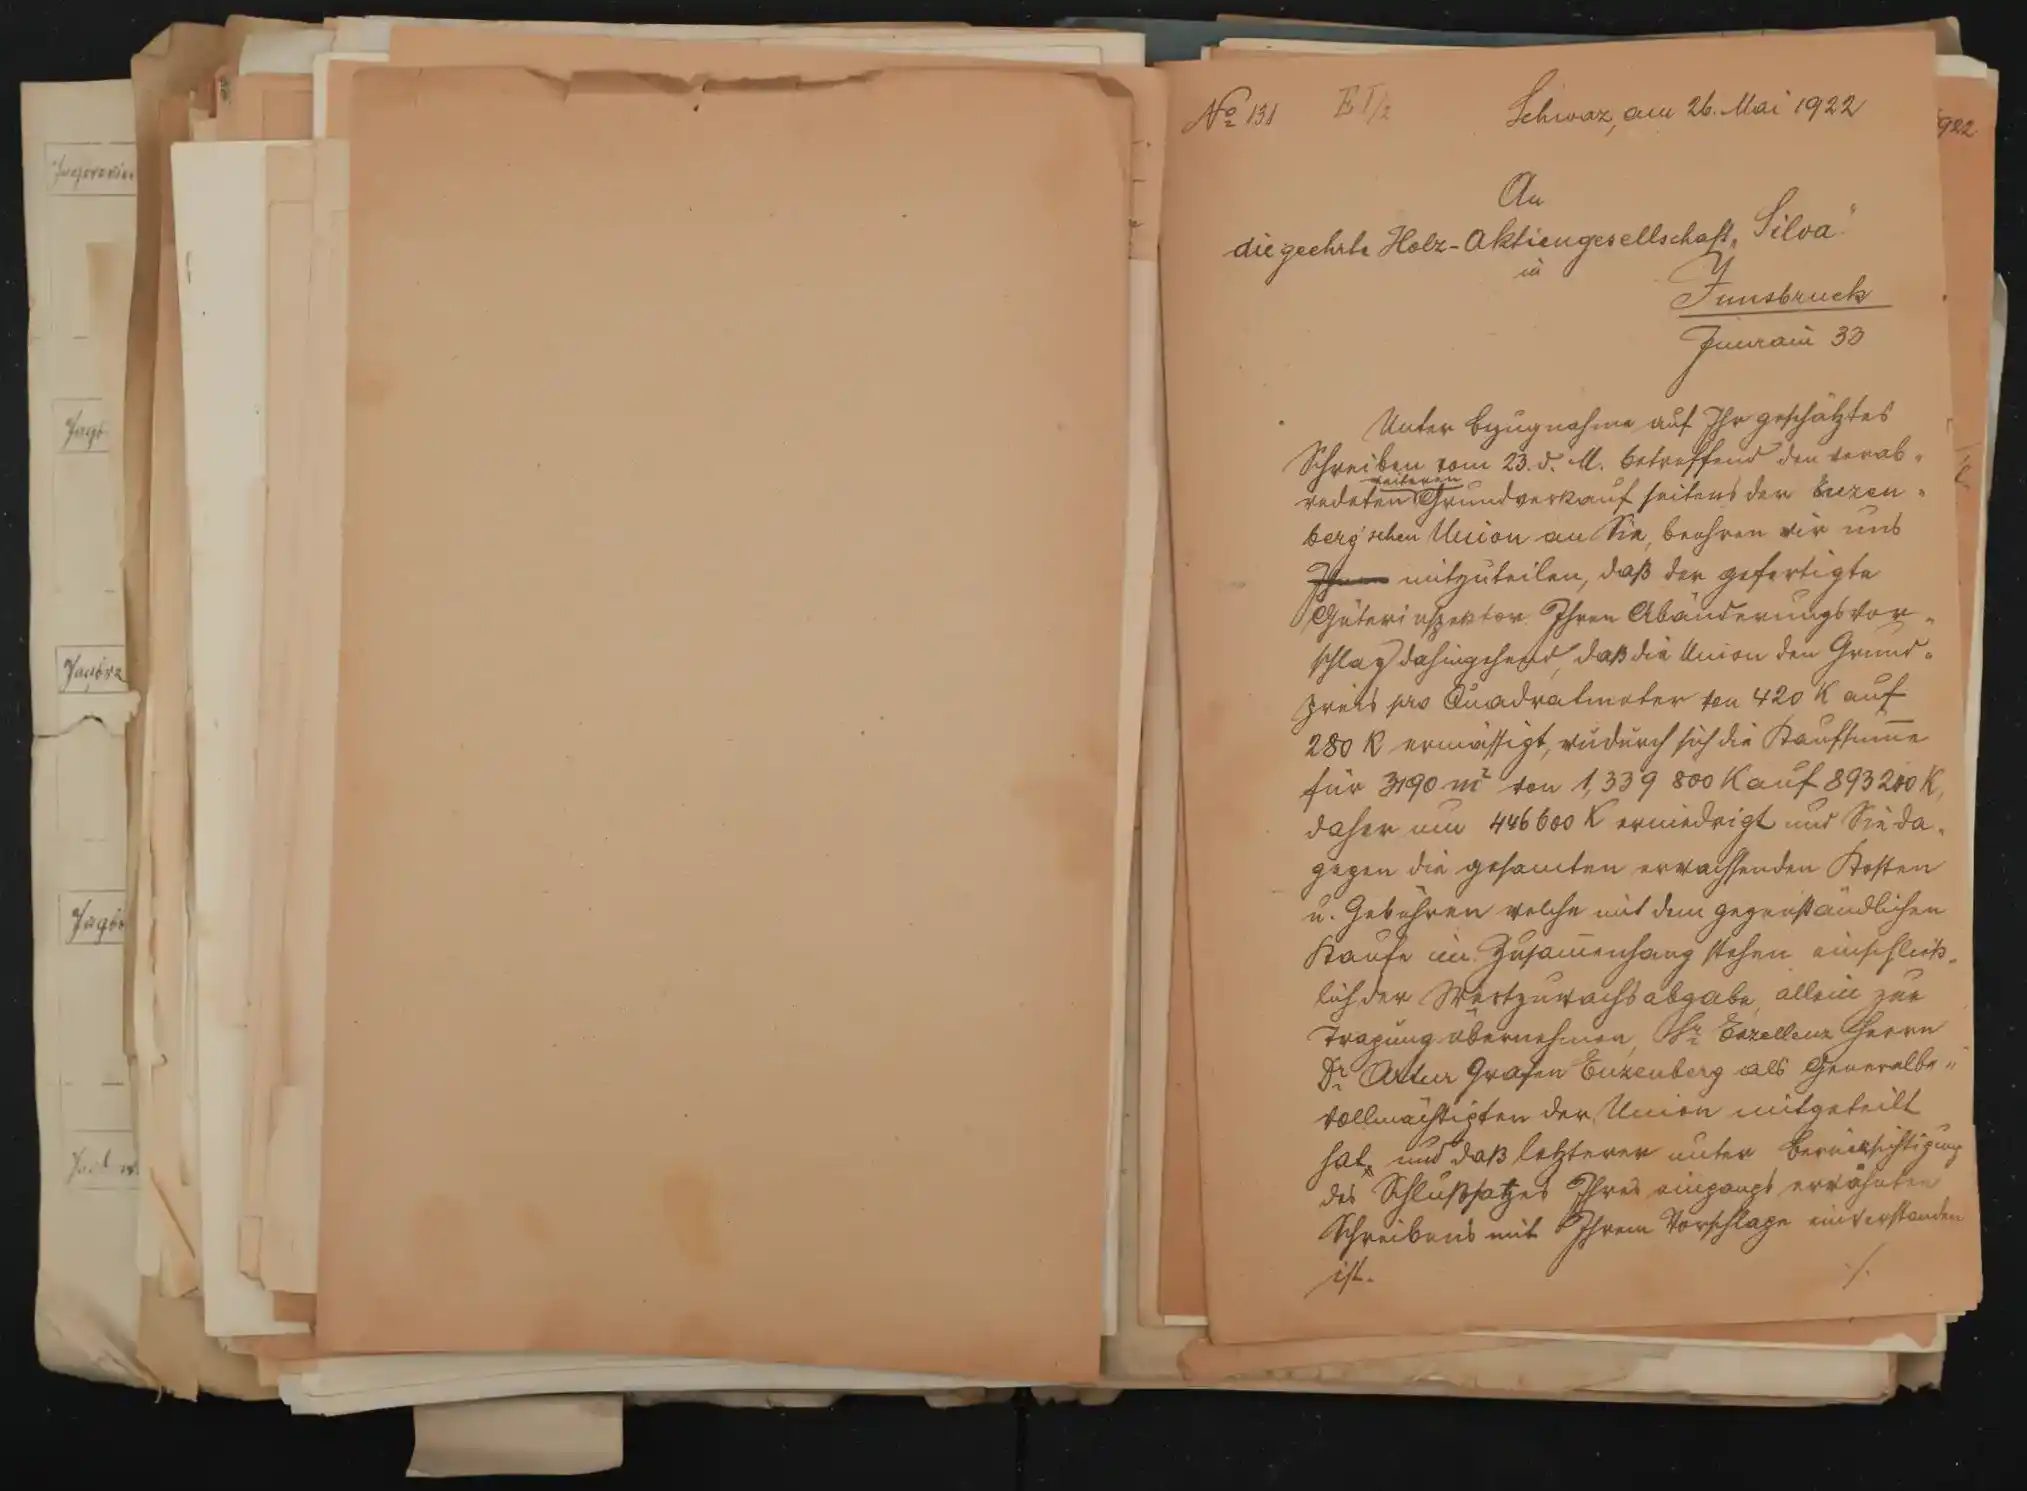 Jagdrevier
Jagd
№ 131
E I/2
Schwaz, am 26. Mai 1922
922
An
die geehrte Holz-Aktiengesellschaft „Silva“
in
Innsbruck
Innrain 33
Unter Bezugnahme auf Ihr geschätztes
Schreiben vom 23. d. M. betreffend den verab-
weiteren
redeten Grundverkauf seitens der Enzen-
berg'schen Union an Sie, beehren wir uns
Ihnen mitzuteilen, daß der gefertigte
Güterinspektor Ihren Abänderungsvor-
schlag dahingehend, daß die Union den Grund-
preis pro Quadratmeter von 420 K auf
280 K ermässigt, wodurch sich die Kaufsumme
für 3190 m² von 1,339 800 K auf 893200 K,
daher um 446600 K erniedrigt und Sie da-
gegen die gesamten erwachsenden Kosten
u. Gebühren welche mit dem gegenständlichen
Kaufe im Zusammenhang stehen einschließ-
lich der Wertzuwachsabgabe, allein zur
Tragung übernehmen, Sr Exzellenz Herrn
Dr Artur Grafen Enzenberg als Generalbe-
vollmächtigten der Union mitgeteilt
hat, und daß letzterer unter Berücksichtigung
des Schlußsatzes Ihres eingangs erwähnten
Schreibens mit Ihrem Vorschlage einverstanden
ist.
./.